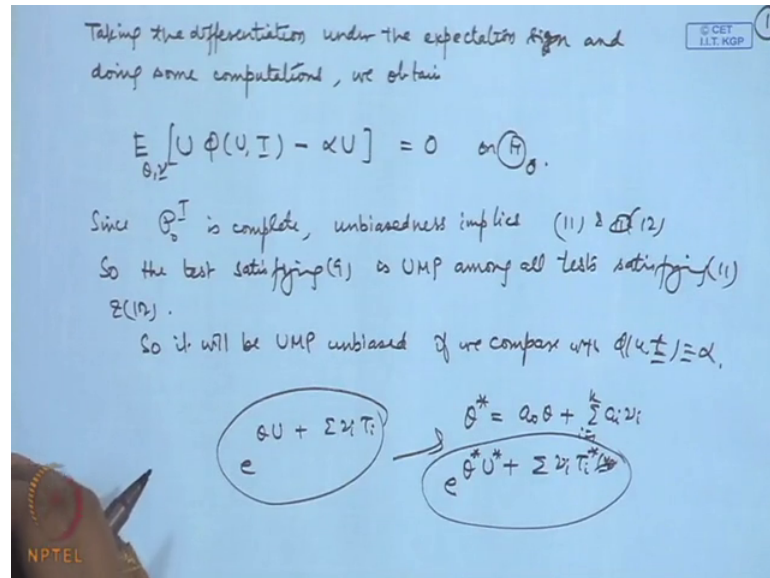 Taking the differentiation under the expectation sign and
© CET
I.I.T. KGP
doing some computations, we obtain
E_{θ,ν} [U φ(U, T) - αU] = 0 on Ⓗ_0.
Since P_0^T is complete, unbiasedness implies (11) & (12)
So the test satisfying (9) is UMP among all tests satisfying (11)
& (12).
So it will be UMP unbiased if we compare with φ(u, t) ≡ α.
θ* = a_0 θ + Σ a_i ν_i
e^{θU + Σ ν_i T_i} → e^{θ* U* + Σ ν_i T_i*}
NPTEL